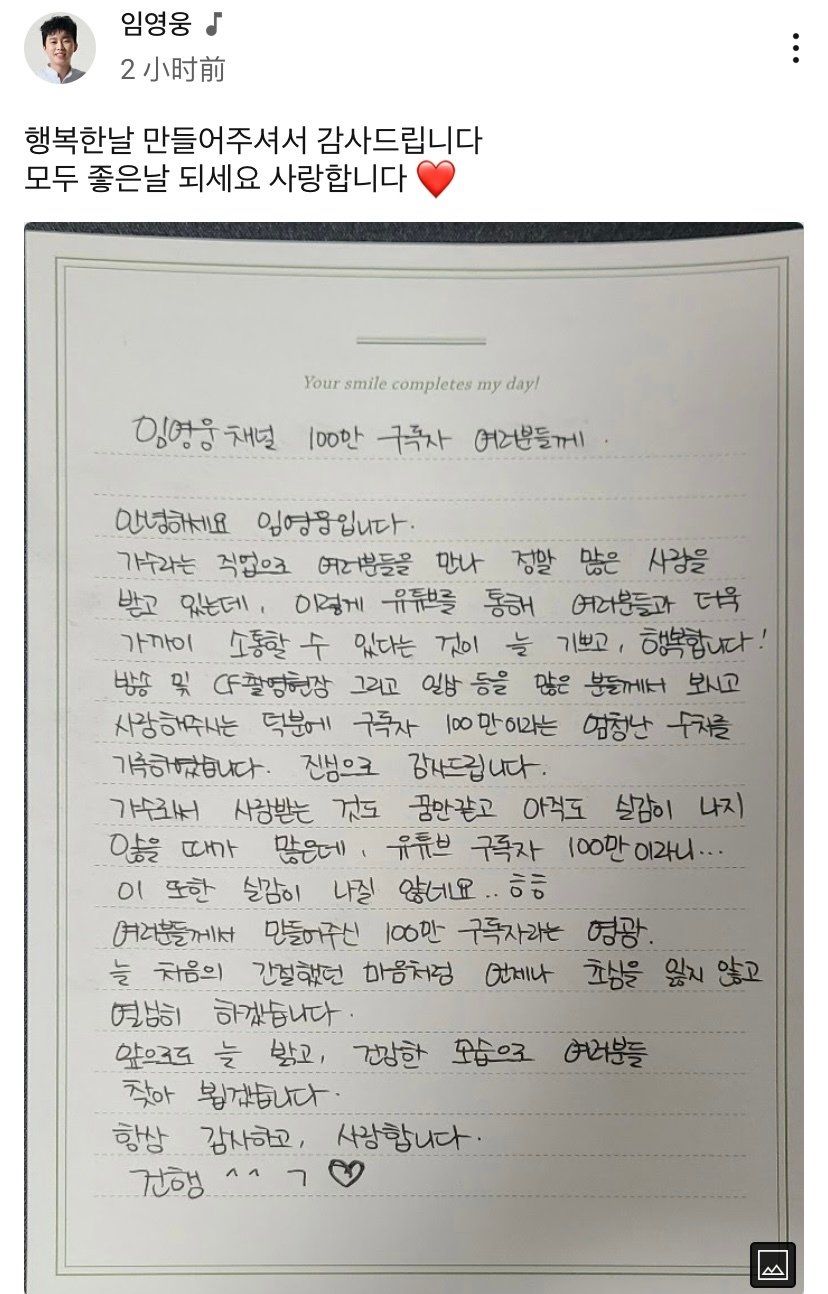 임영웅 ♪
2 小时前
행복한날 만들어주셔서 감사드립니다
모두 좋은날 되세요 사랑합니다 ❤️
Your smile completes my day!
임영웅 채널 100만 구독자 여러분들께.
안녕하세요 임영웅입니다.
가수라는 직업으로 여러분들을 만나 정말 많은 사랑을
받고 있는데, 이렇게 유튜브를 통해 여러분들과 더욱
가까이 소통할 수 있다는 것이 늘 기쁘고, 행복합니다!
방송 및 CF촬영현장 그리고 일상 등을 많은 분들께서 보시고
사랑해주시는 덕분에 구독자 100만이라는 엄청난 수치를
기록하였습니다. 진심으로 감사드립니다.
가수로써 사랑받는 것도 꿈만같고 아직도 실감이 나지
않을 때가 많은데, 유튜브 구독자 100만이라니...
이 또한 실감이 나질 않네요..ㅎㅎ
여러분들께서 만들어주신 100만 구독자라는 영광.
늘 처음의 간절했던 마음처럼 언제나 초심을 잃지 않고
열심히 하겠습니다.
앞으로도 늘 밝고, 건강한 모습으로 여러분들
찾아 뵙겠습니다.
항상 감사하고, 사랑합니다.
건행 ^^ ㄱ ♡